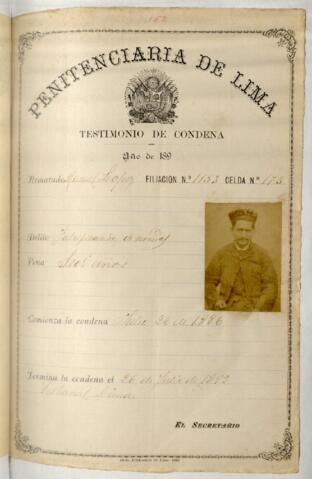 162
PENITENCIARIA DE LIMA
TESTIMONIO DE CONDENA
Año de 189
Rematado Manuel Lopez FILIACION N.º 1153 CELDA N.º 175
Delito Falsificación de monedas
Pena Seis años
Comienza la condena Julio 26 de 1886
Termina la condena el 26 de Julio de 1892
Tribunal Lima
EL SECRETARIO